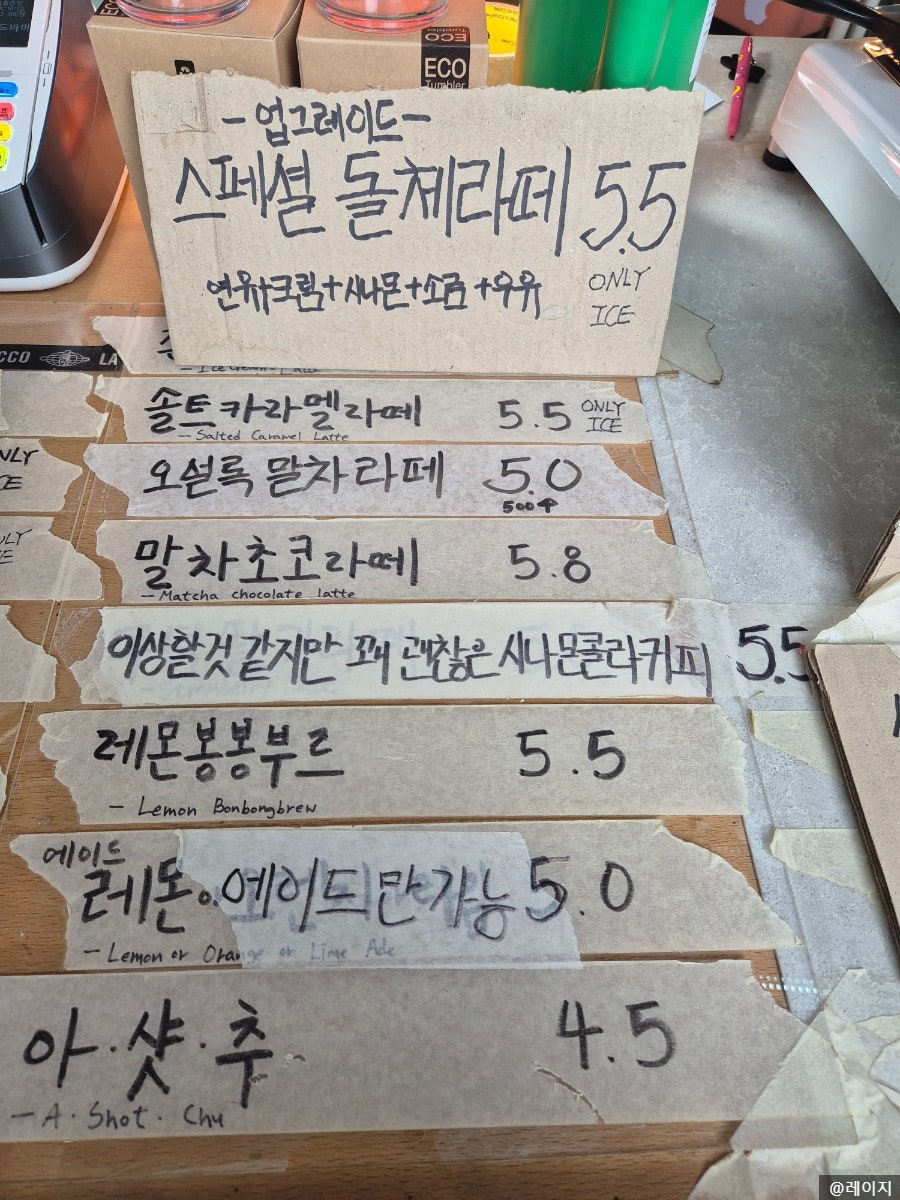 ECO
ECO
Tumbler
-업그레이드-
스페셜 돌체라떼 5.5
연유+크림+시나몬+소금+우유
ONLY
ICE
CCO
LA
솔트카라멜라떼 5.5 ONLY ICE
- Salted Caramel Latte
오설록 말차라떼 5.0
500↑
말차초코라떼 5.8
- Matcha chocolate latte
이상할것 같지만 꽤 괜찮은 시나몬콜라커피 5.5
레몬봉봉부르 5.5
- Lemon Bonbongbrew
에이드
레몬 에이드만가능 5.0
- Lemon or Orange or Lime Ade
아·샷·추 4.5
- A·Shot·Chu
@레이지